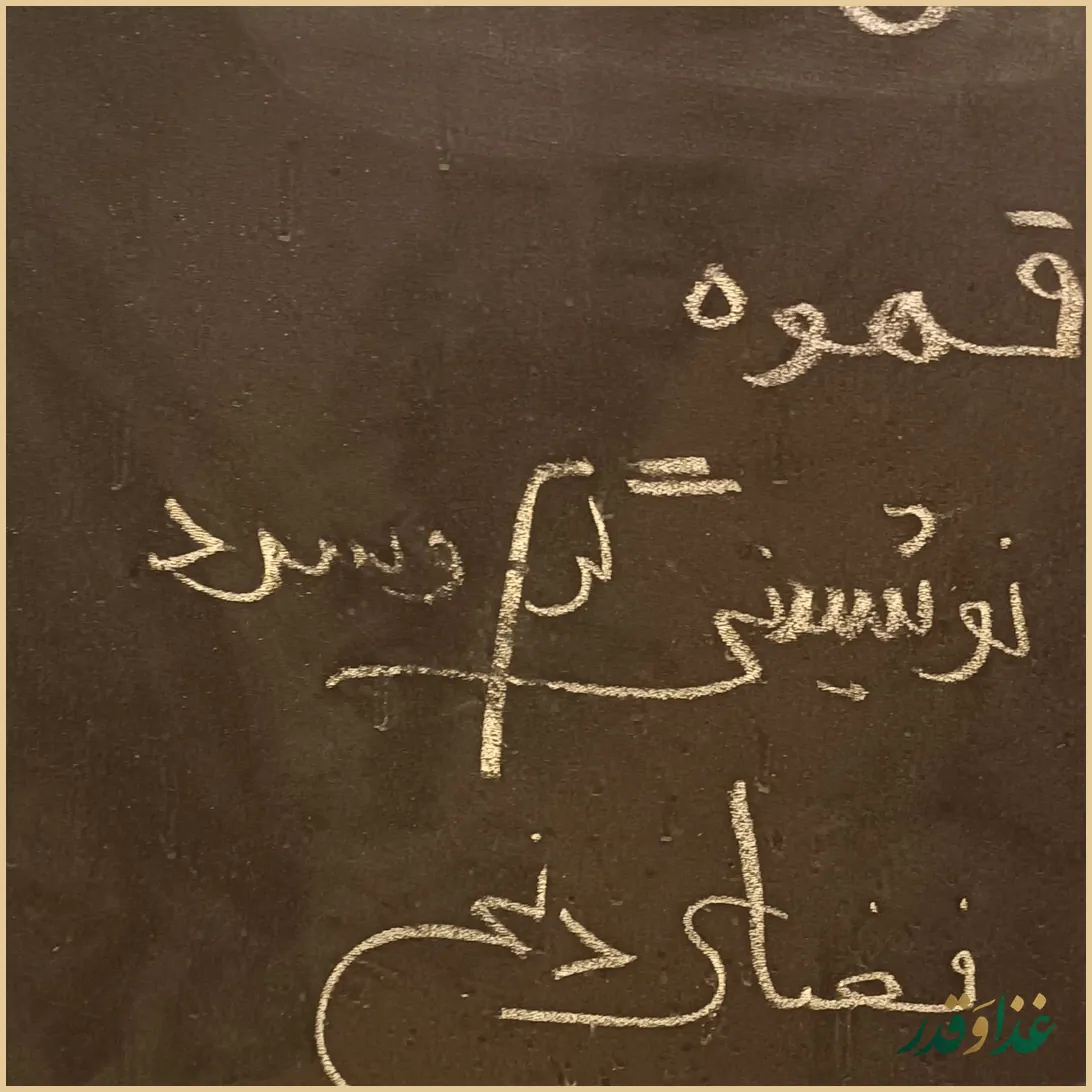 قهوه
نوشیدنی گرم وسرد
فضای دنج
غذا وَ قدر